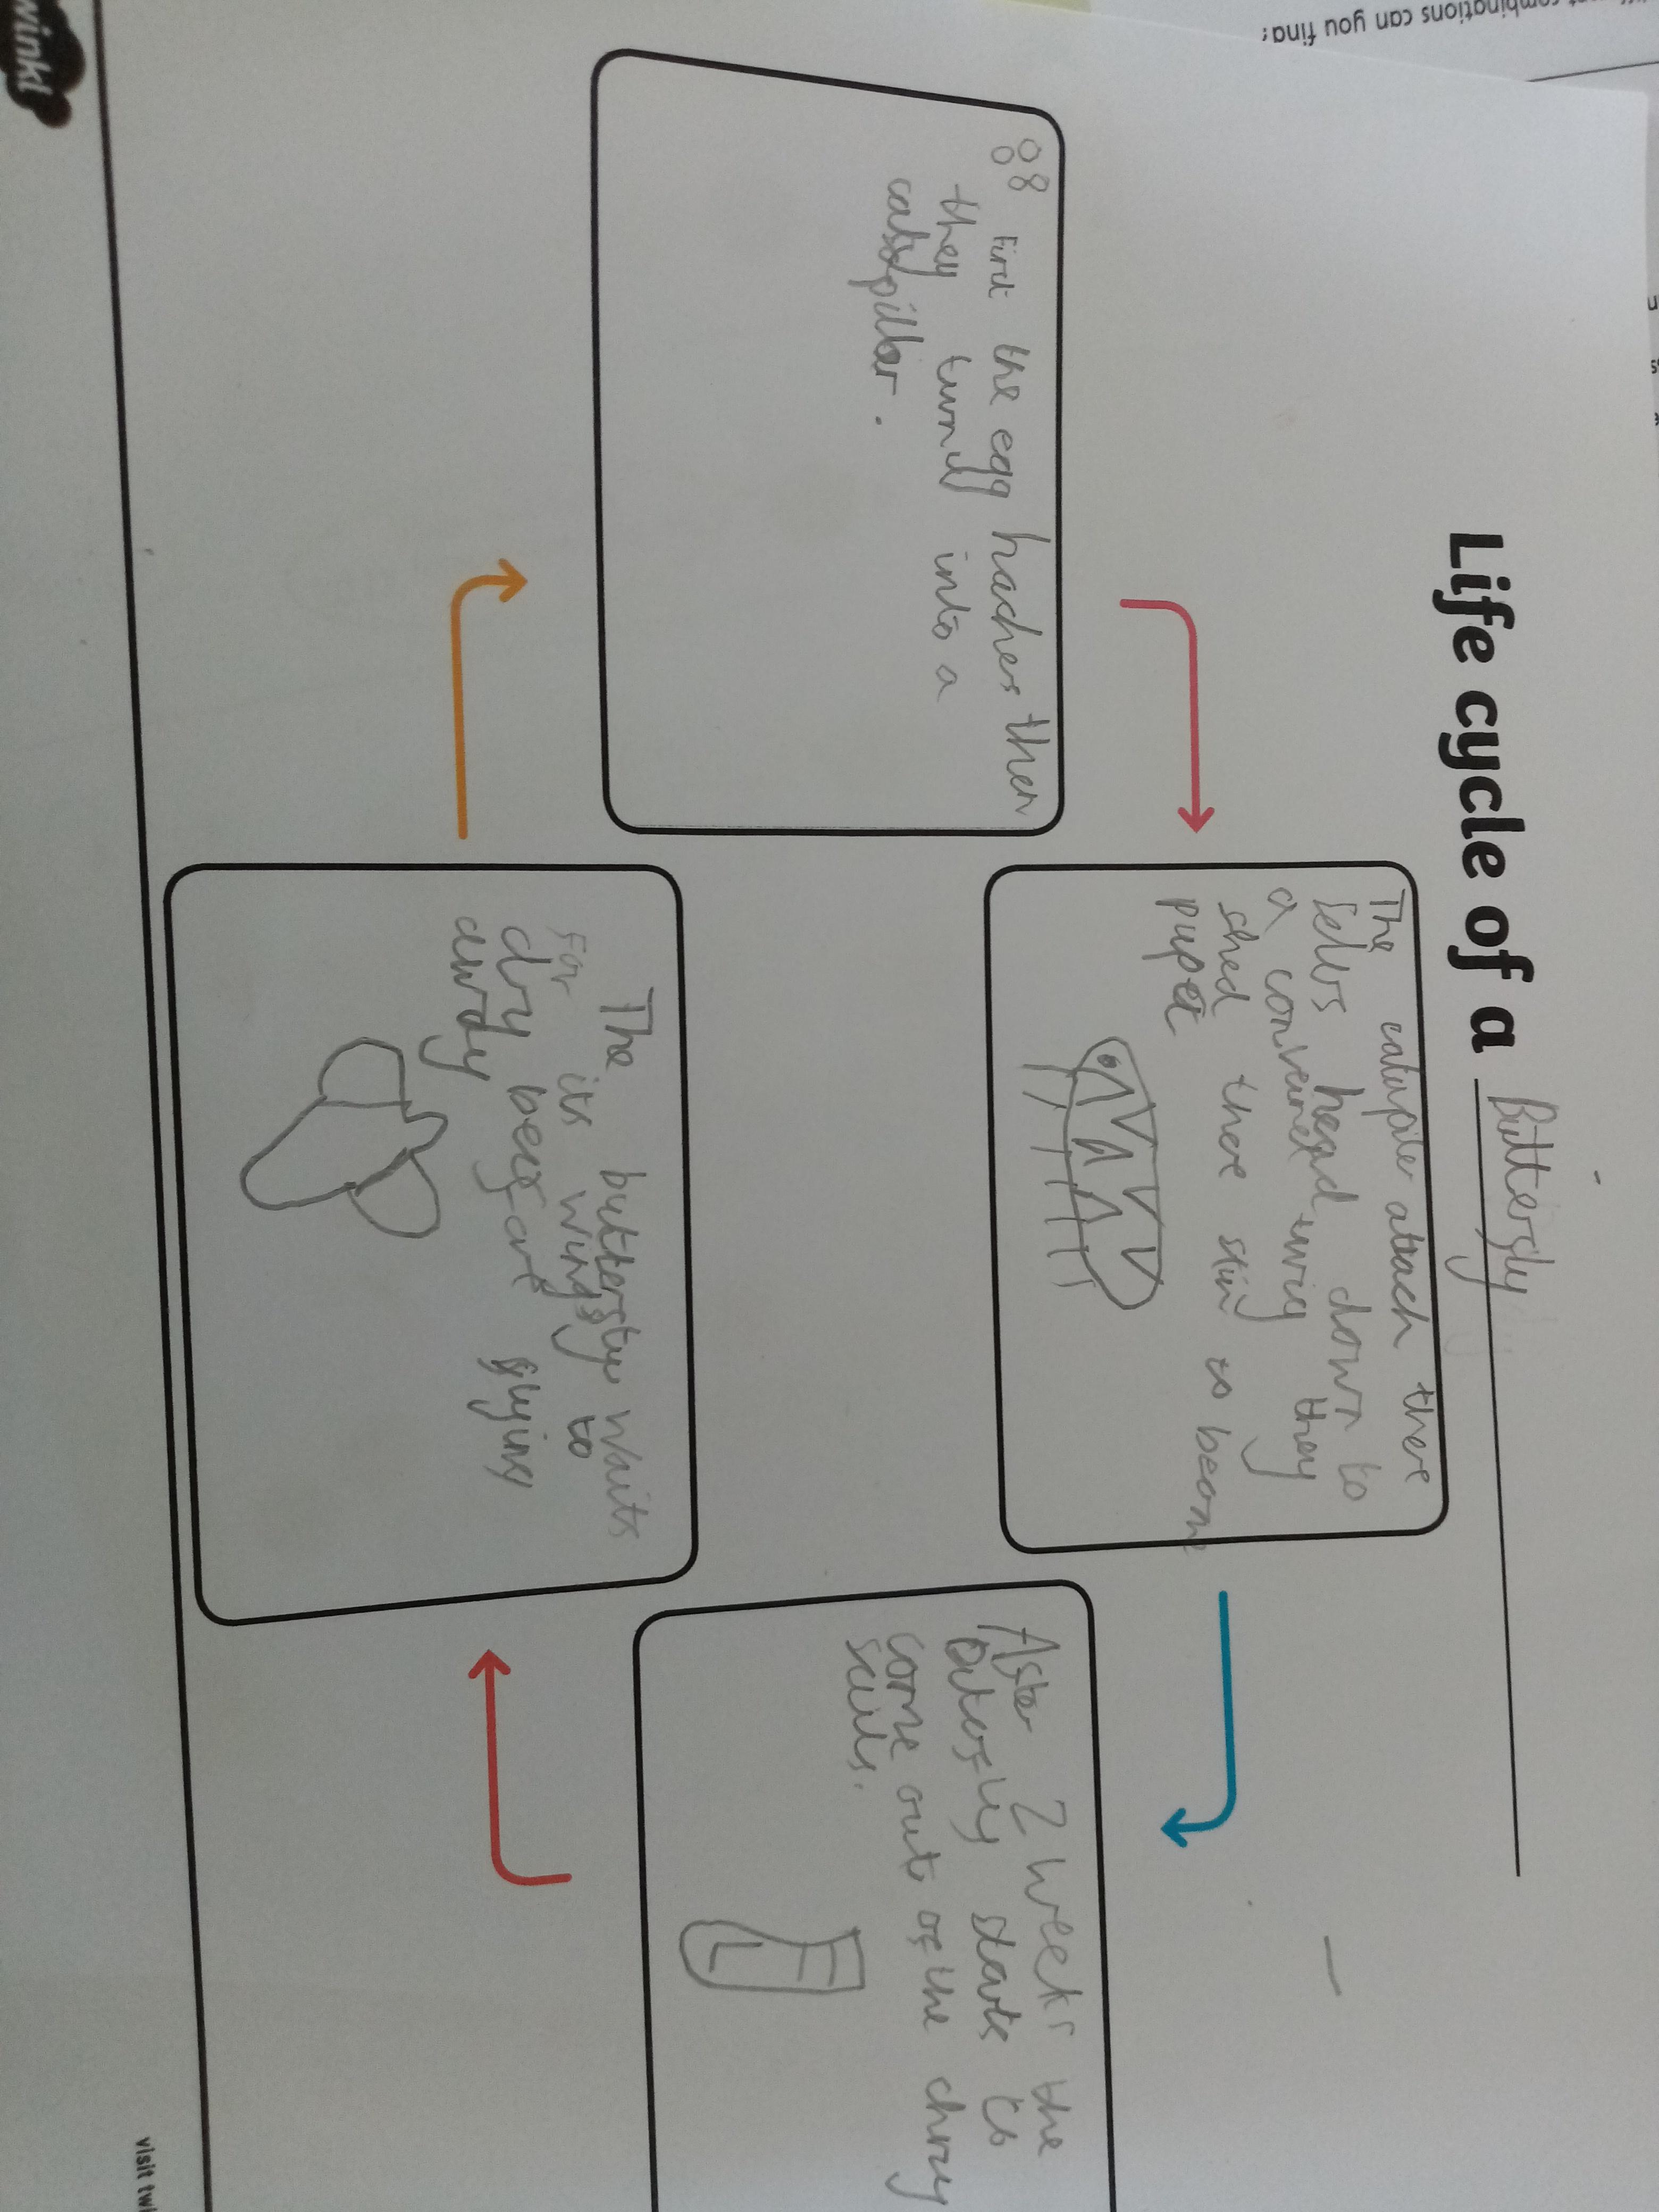 Life cycle of a Butterfly
First the egg haches then
they turnd into a
catapillar.
The catapile atach there
selvs head down to
a
they
shed there skin to become
pupa
After 2 weeks the
buterfly starts to
come out of the chrry
scills.
The butterflye waits
For its wings to
dry before flying
away
combinations can you find?
winkl
visit twi